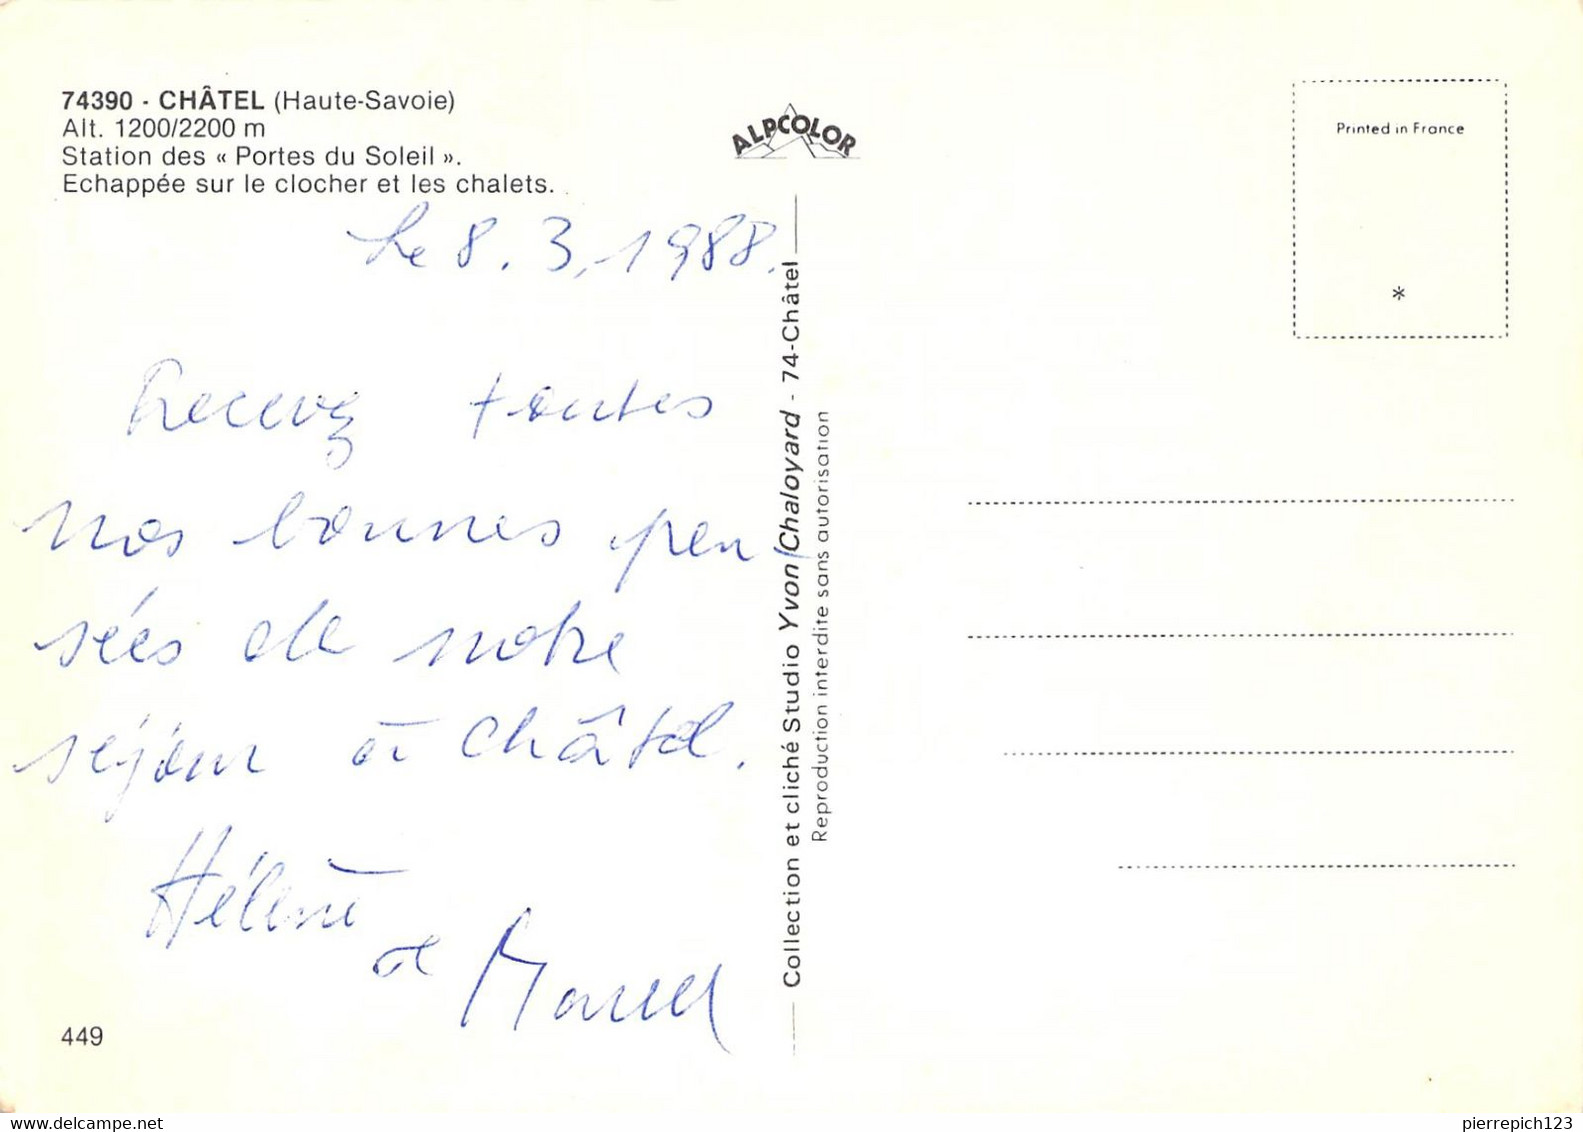 74390 - CHÂTEL (Haute-Savoie)
Alt. 1200/2200 m
Station des « Portes du Soleil ».
Echappée sur le clocher et les chalets.
Le 8.3.1988.
Recevez toutes
nos bonnes pen
sées de notre
séjour à Châtel.
Hélène
et Marcel
449
ALPCOLOR
Collection et cliché Studio Yvon Chaloyard - 74-Châtel
Reproduction interdite sans autorisation
Printed in France
*
delcampe.net
pierrepich123